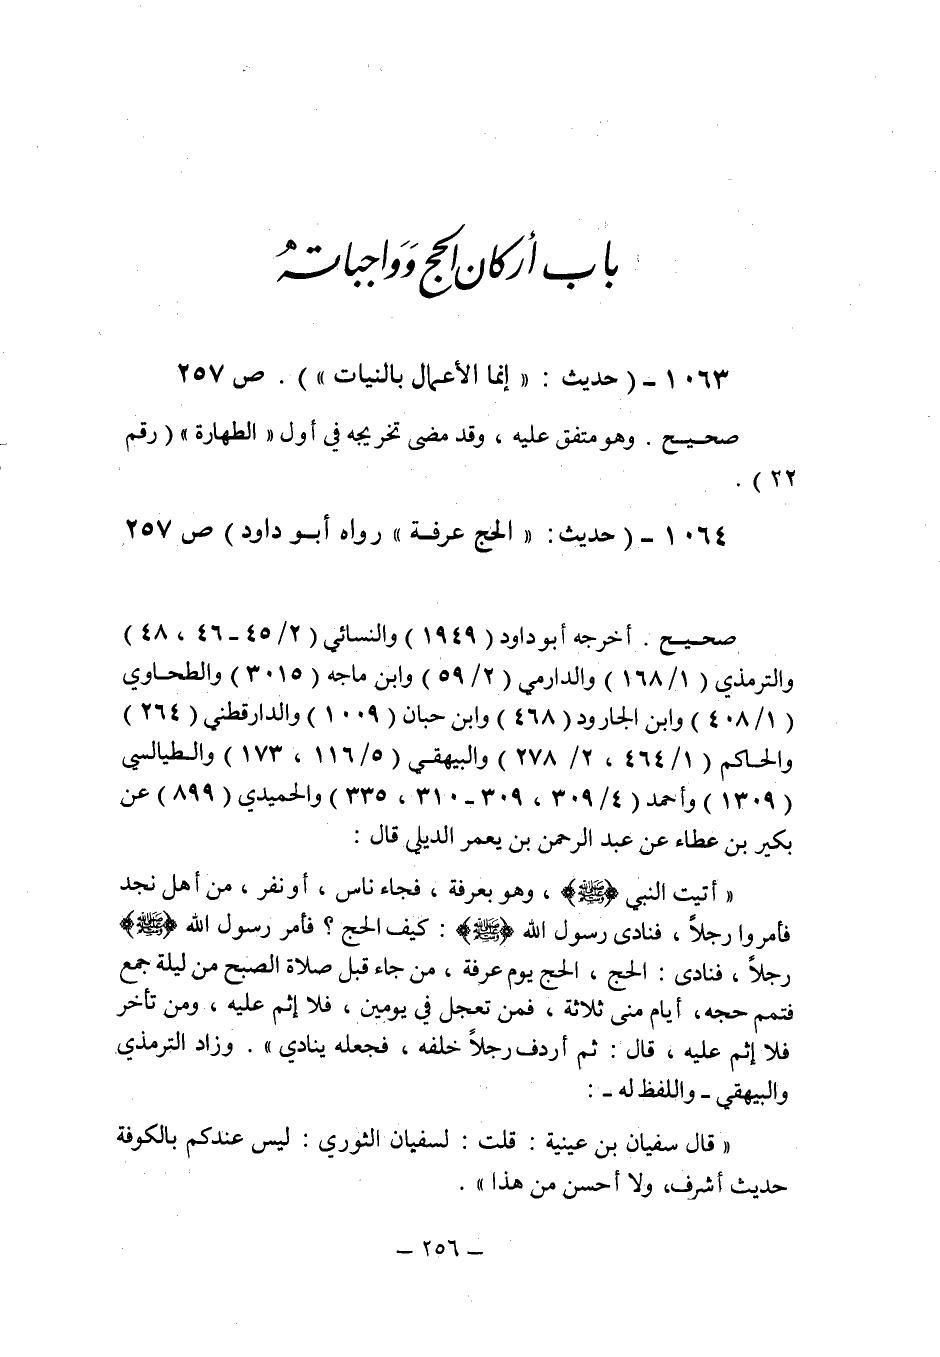 باب أركان الحج وواجباته
١٠٦٣ - ( حديث : « إنما الأعمال بالنيات » ) . ص ٢٥٧
صحيح . وهو متفق عليه ، وقد مضى تخريجه في أول « الطهارة » ( رقم
٢٢ ) .
١٠٦٤ - ( حديث : « الحج عرفة » رواه أبو داود ) ص ٢٥٧
صحيح . أخرجه أبو داود ( ١٩٤٩ ) والنسائي ( ٢/ ٤٥ - ٤٦ ، ٤٨ )
والترمذي ( ١/ ١٦٨ ) والدارمي ( ٢/ ٥٩ ) وابن ماجه ( ٣٠١٥ ) والطحاوي
( ١/ ٤٠٨ ) وابن الجارود ( ٤٦٨ ) وابن حبان ( ١٠٠٩ ) والدارقطني ( ٢٦٤ )
والحاكم ( ١/ ٤٦٤ ، ٢/ ٢٧٨ ) والبيهقي ( ٥/ ١١٦ ، ١٧٣ ) والطيالسي
( ١٣٠٩ ) وأحمد ( ٤/ ٣٠٩ ، ٣٠٩ - ٣١٠ ، ٣٣٥ ) والحميدي ( ٨٩٩ ) عن
بكير بن عطاء عن عبد الرحمن بن يعمر الديلي قال :
« أتيت النبي ﴿ﷺ﴾ ، وهو بعرفة ، فجاء ناس ، أو نفر ، من أهل نجد
فأمروا رجلاً ، فنادى رسول الله ﴿ﷺ﴾ : كيف الحج ؟ فأمر رسول الله ﴿ﷺ﴾
رجلاً ، فنادى : الحج ، الحج يوم عرفة ، من جاء قبل صلاة الصبح من ليلة جمع
فتمم حجه، أيام منى ثلاثة ، فمن تعجل في يومين ، فلا إثم عليه ، ومن تأخر
فلا إثم عليه ، قال : ثم أردف رجلاً خلفه ، فجعله ينادي » . وزاد الترمذي
والبيهقي - واللفظ له - :
« قال سفيان بن عينية : قلت : لسفيان الثوري : ليس عندكم بالكوفة
حديث أشرف، ولا أحسن من هذا » .
- ٢٥٦ -